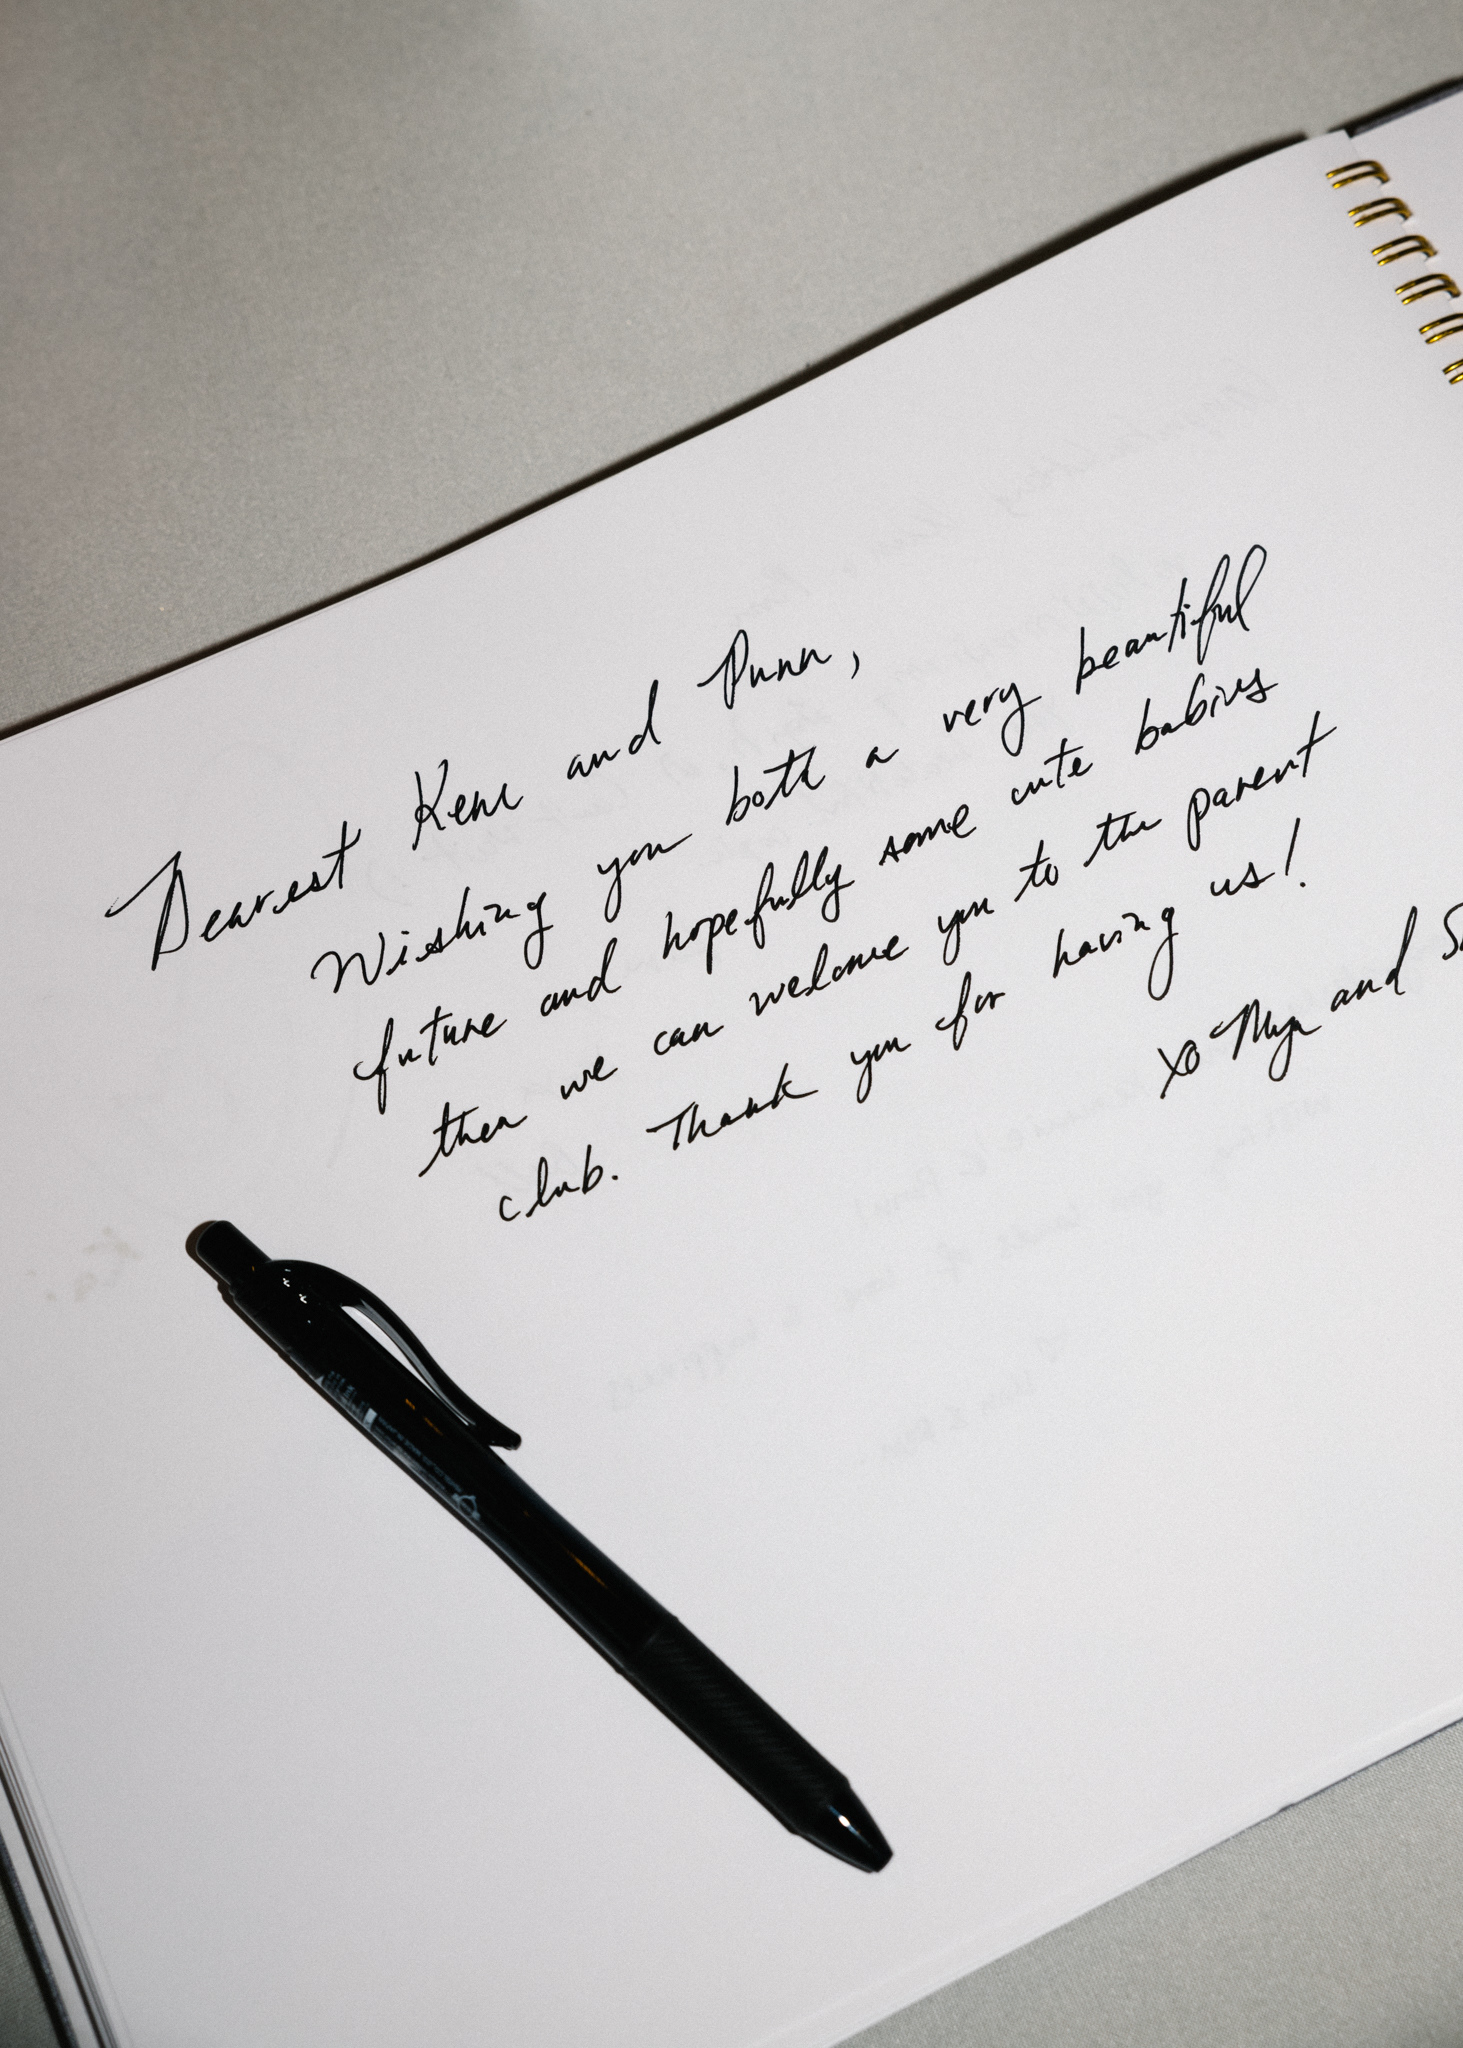 Dearest Kene and Punn,
Wishing you both a very beautiful
future and hopefully some cute babies
then we can welcome you to the parent
club. Thank you for having us!
xo Mya and